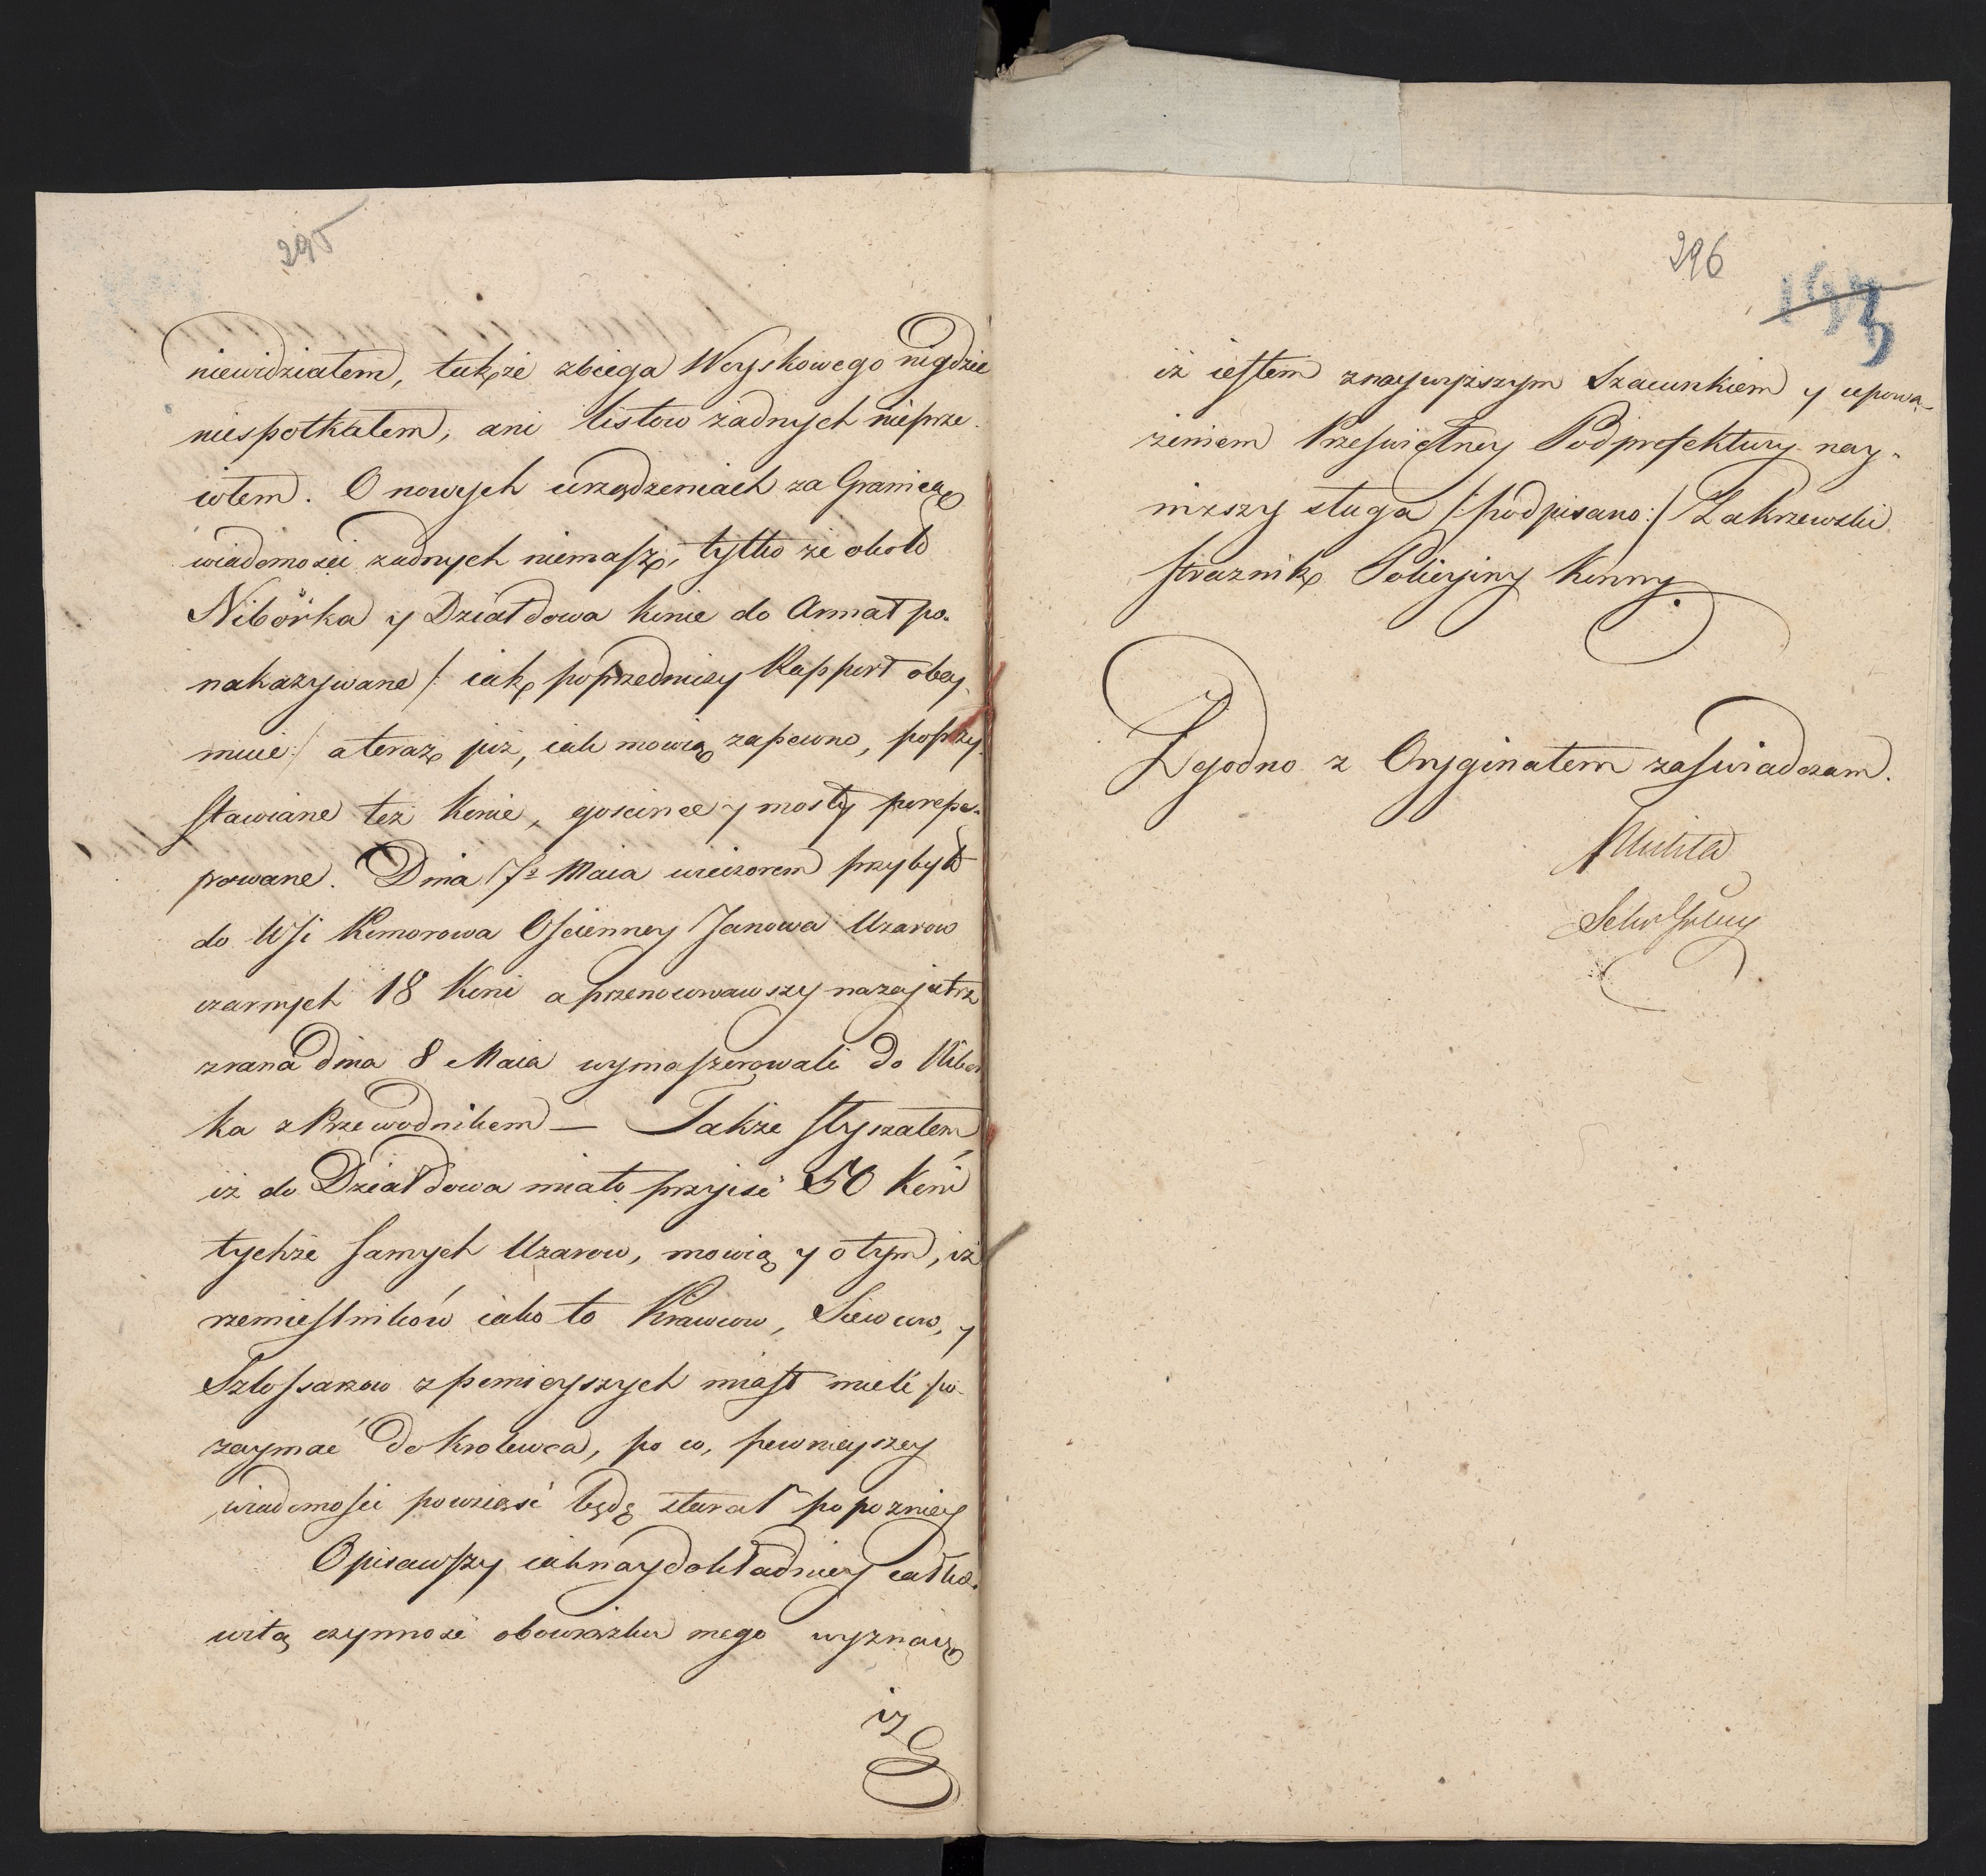 295
niewidziałem, takze zbiega Woyskowego nigdzie
niespotkałem, ani listow żadnych nieprze-
iołem. O nowych urządzeniach za Granicą
wiadomosci zadnych niemasz, tylko że około
Niborka y Działdowa konie do Armat po-
nakazywane /: iak poprzedniczy Rapport obey-
muie :/ a teraz już, iak mowią zapewno, poprzy-
stawiane też konie, goscince y mosty porepe-
rowane. Dnia 7º Maia wieczorem przybyło
do Wsi Komorowa Osciennney Janowa Uzarow
czarnych 18 Koni a przenocowawszy nazajutrz
zrana dnia 8 Maia wymaszerowali do Nibor
ka z Przewodnikem — Takze słyszałem
iż do Działdowa miało przyjsć 50 koni
tychże samych Uzarow, mowią y o tym, iż
rzemiesłników iako to Krawcow, Siewcow, y
Szlossarzow z pomieyszych miast mieli po-
zaymać do Krolewca, po co, pewnieyszey
wiadomosci powziąsć będę starał po pozniey
Opisawszy iaknaydokładniey całko-
witą czynnosć obowiązku mego wyznaię
iż
296
iż iestem znaywyższym Szacunkiem y upowa-
żeniem Przeswietney Podprefektury nay-
niższy sługa /: podpisano :/ Zakrzewski
strażnik Policyiny Konny.
Zgodno z Oryginałem zaswiadczam.